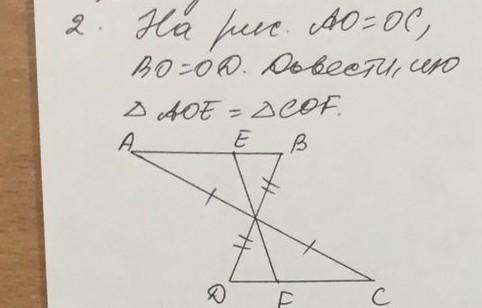 2. На рис. AO=OC,
BO=OD. Довести, що
△ AOE = △COF.
A E B
D F C